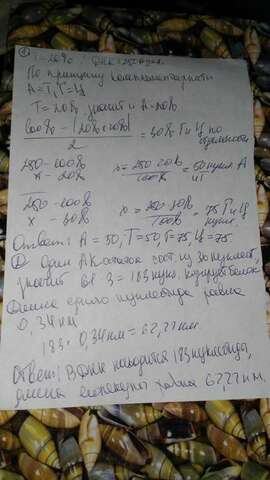 ① Т=20% / ДНК 250 нукл.
По принципу комплементарности
А=Т, Г=Ц
Т=20% значит и А-20%
100% - (20%+20%) / 2 = 30% Г и Ц по
отдельности
250-100%
х - 20%
х = 250·20% / 100% = 50 нукл. А
и Т
250 - 100%
х - 30%
х = 250·30% / 100% = 75 Г и Ц
нукл.
Ответ: А=50, Т=50, Г=75, Ц=75.
② Один АК остаток сост. из 3х нуклеот.,
значит 61·3=183 нукл. кодирует белок
Длина одного нуклеотида равна
0,34 нм
183·0,34 нм = 62,22 нм
Ответ: В ДНК находится 183 нуклеотида,
длина молекулы равна 62,22 нм.